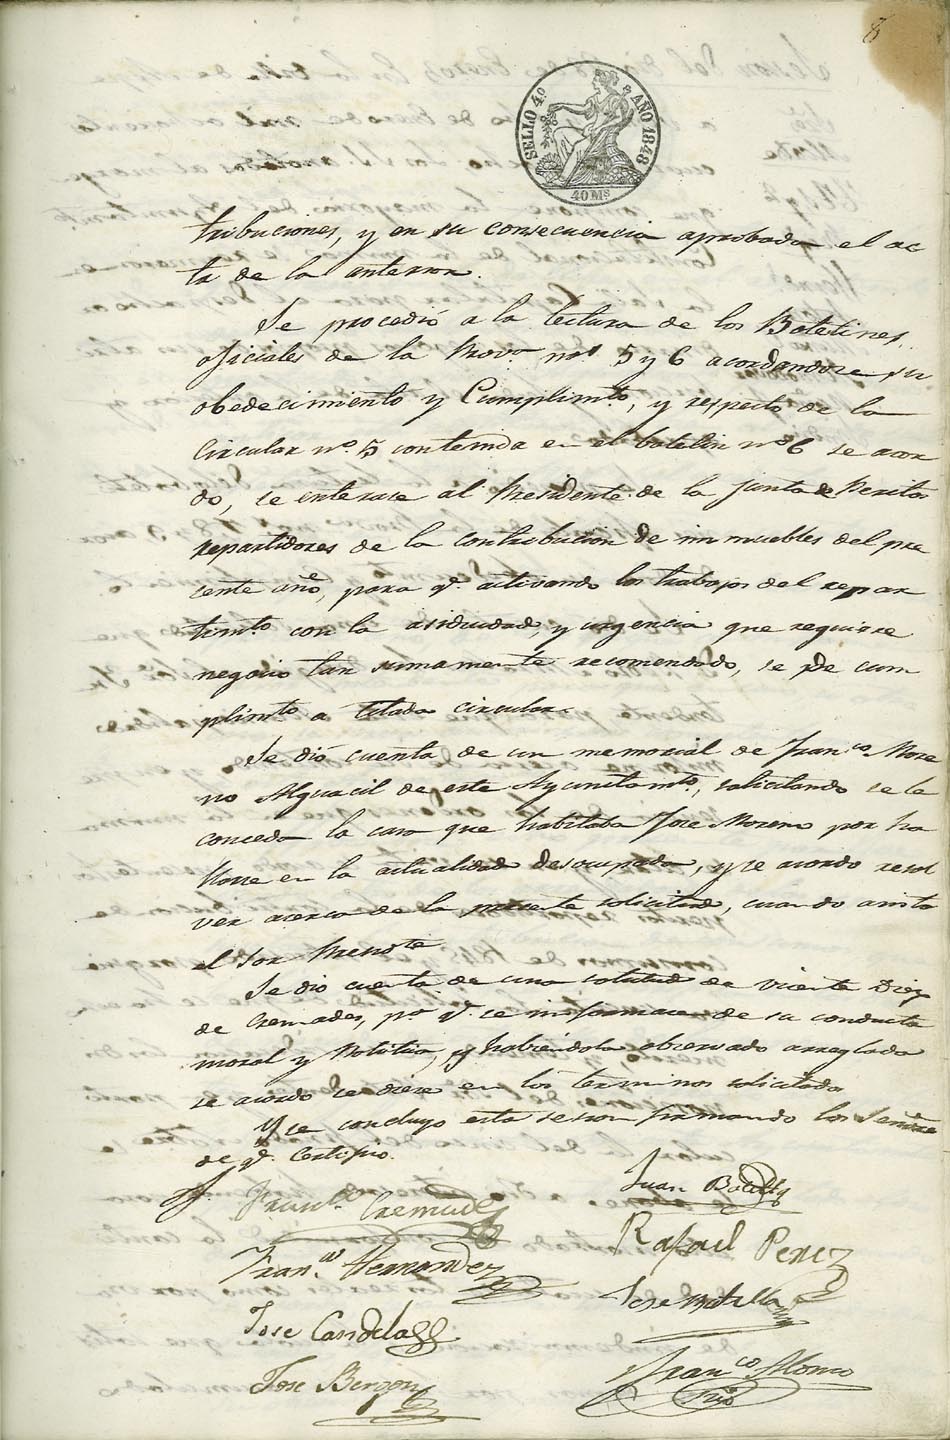 8
SELLO 4.º AÑO 1848
40 Ms
tribuciones, y en su consecuencia aprobada el ac
ta de la anterior.
Se procedió a la lectura de los Boletines
oficiales de la Prov.ª nos 5 y 6 acordandose su
obedecimiento y Cumplimto, y respecto de la
Circular nº. 5 contenida en el boletin nº 6 se acor
do, se enterase al Presidente de la junta de Peritos
repartidores de la contribucion de inmuebles del pre
cente año, para q.e activando los trabajos del repar
timto. con la asiduidad, y urgencia que requiere
negocio tan sumamente recomendado, se de cum
plimto a citada circular.
Se dió cuenta de un memorial de Franco. More
no Alguacil de este Ayuntamto, solicitando se le
conceda la casa que habitaba Jose Moreno por ha
llarse en la actualidad desocupada, y se acordo resol
ver acerca de la presente solicitud, cuando asista
el Sor Presdte
Se dio cuenta de una solicitud de Vicente Diez
de Cremades, pª q.e se informase de su conducta
moral y Politica, y habiendola observado arreglada
se acordo se diese en los terminos solicitados
Y se concluyo esta sesion firmando los Señore
de q.e Certifico.
Franco. Cremades
Juan Botella
Franco. Hernandez
Rafael Perez
Jose Candela
Jose Botella
Jose Berzon
Franco Alonso
Srio